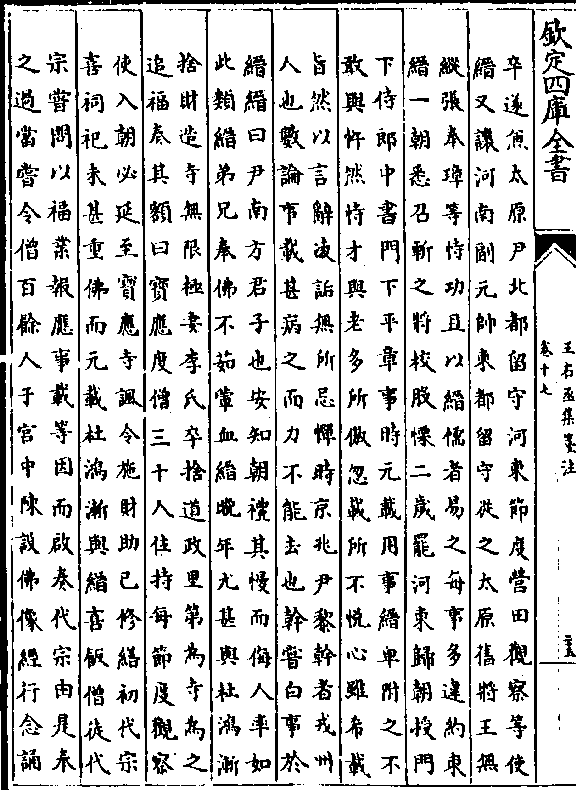 欽定四庫全書
王右丞集箋注
卷十七
卒遂兼太原尹北都留守河東節度營田觀察等使
縉又讓河南副元帥東都留守從之太原舊將王無
縱張奉璋等恃功且以縉儒者易之每事多違約束
縉一朝悉召斬之將校股慄二歲罷河東歸朝授門
下侍郎中書門下平章事時元載用事縉卑附之不
敢與忤然恃才與老多所傲忽載所不悅心雖希載
旨然以言辭凌詬無所忌憚時京兆尹黎幹者戎州
人也數論事載甚病之而力不能去也幹嘗白事於
縉縉曰尹南方君子也安知朝禮其慢而侮人率如
此類縉弟兄奉佛不茹葷血縉晚年尤甚與杜鴻漸
捨財造寺無限極妻李氏卒捨道政里第為寺為之
追福奏其額曰寶應度僧三十人住持每節度觀察
使入朝必延至寶應寺諷令施財助己修繕初代宗
喜祠祀未甚重佛而元載杜鴻漸與縉喜飯僧徒代
宗嘗問以福業報應事載等因而啟奏代宗由是奉
之過當嘗令僧百餘人于宮中陳設佛像經行念誦